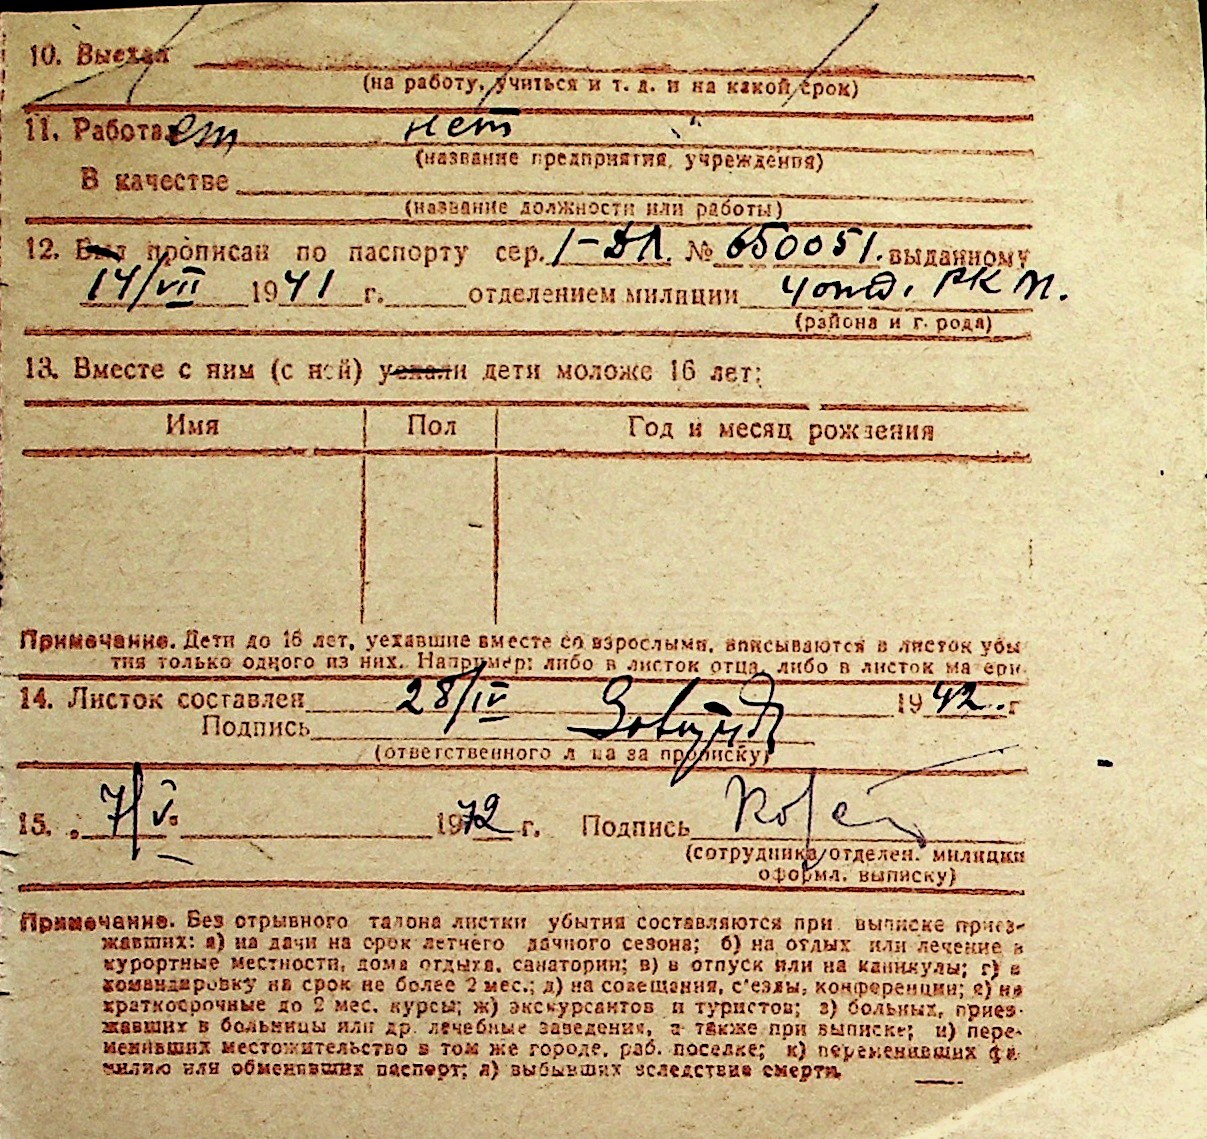 10. Выехал
(на работу, учиться и т. д. и на какой срок)
11. Работает нет "
(название предприятия, учреждения)
В качестве
(название должности или работы)
12. Был прописан по паспорту сер. I-ДЛ. № 650051. выданному
14/VII 1941 г. отделением милиции 4 отд. РКМ.
(района и г. рода)
13. Вместе с ним (с ней) уехали дети моложе 16 лет:
Имя Пол Год и месяц рождения
Примечание. Дети до 16 лет, уехавшие вместе со взрослыми, вписываются в листок убы
тия только одного из них. Например: либо в листок отца, либо в листок ма ери
14. Листок составлен 28/IV 1942. г
Подпись
(ответственного л ца за прописку)
15. 7/V. 1942 г. Подпись
(сотрудника отделен. милиции
оформл. выписку)
Примечание. Без отрывного талона листки убытия составляются при выписке приез-
жавших: а) на дачи на срок летнего дачного сезона; б) на отдых или лечение в
курортные местности, дома отдыха, санатории; в) в отпуск или на каникулы; г) в
командировку на срок не более 2 мес.; д) на совещания, с'езды, конференции; е) на
краткосрочные до 2 мес. курсы; ж) экскурсантов и туристов; з) больных, приез-
жавших в больницы или др. лечебные заведения, а также при выписке; и) пере-
менивших местожительство в том же городе, раб. поселке; к) переменивших фа-
милию или обменявших паспорт; л) выбывших вследствие смерти.